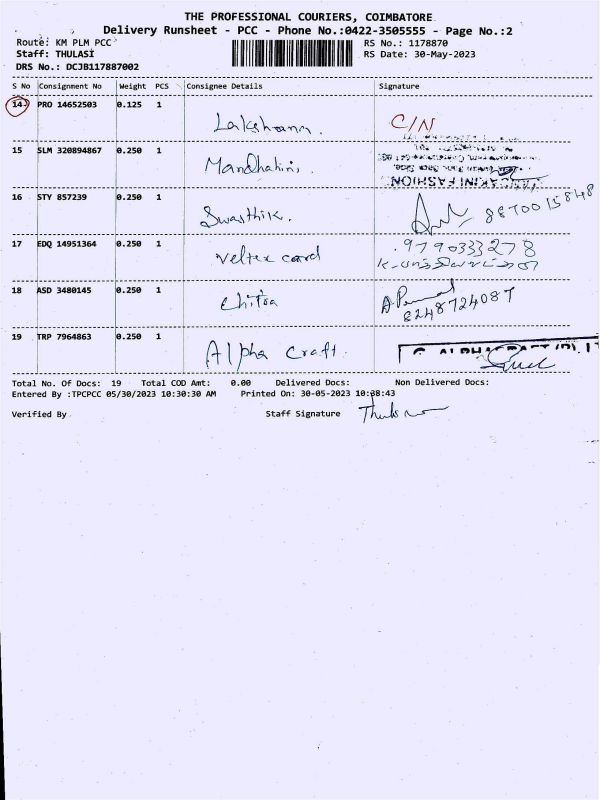 THE PROFESSIONAL COURIERS, COIMBATORE
Delivery Runsheet - PCC - Phone No.:0422-3505555 - Page No.:2
Route: KM PLM PCC
RS No.: 1178870
Staff: THULASI
RS Date: 30-May-2023
DRS No.: DCJB117887002
S No Consignment No Weight PCS Consignee Details Signature
14 PRO 14652503 0.125 1
Lakshmann. C/N
15 SLM 320894867 0.250 1
Mandhahini,
FASHION
16 STY 857239 0.250 1
Swasthik. 8870015848
17 EDQ 14951364 0.250 1
Veltex card 9790333278
18 ASD 3480145 0.250 1
Chitra
8248724087
19 TRP 7964863 0.250 1
Alpha Craft.
Total No. Of Docs: 19 Total COD Amt: 0.00 Delivered Docs: Non Delivered Docs:
Entered By :TPCPCC 05/30/2023 10:30:30 AM Printed On: 30-05-2023 10:38:43
Verified By Staff Signature